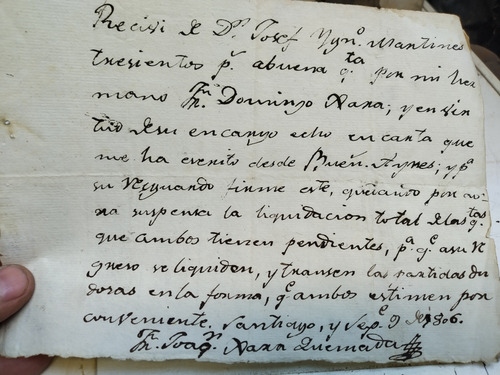 Recivi de Dn. Josef Ygno. Martines
tresientos ps. abuena qta. por mi her
mano Fr. Domingo Xara; y en vir
tud de su encargo echo en carta que
me ha escrito desde Buens. Ayres; y pa.
su resguardo firme este, quedando por ao
ra suspensa la liquidacion total de las qtas.
que ambos tienen pendientes, pa. qe. a su re
greso se liquiden, y transen las partidas du
dosas en la forma, qe. ambos estimen por
conveniente. Santiago, y Sepe. 9 de 1806.
Fr. Joaqn. Xara Quemada